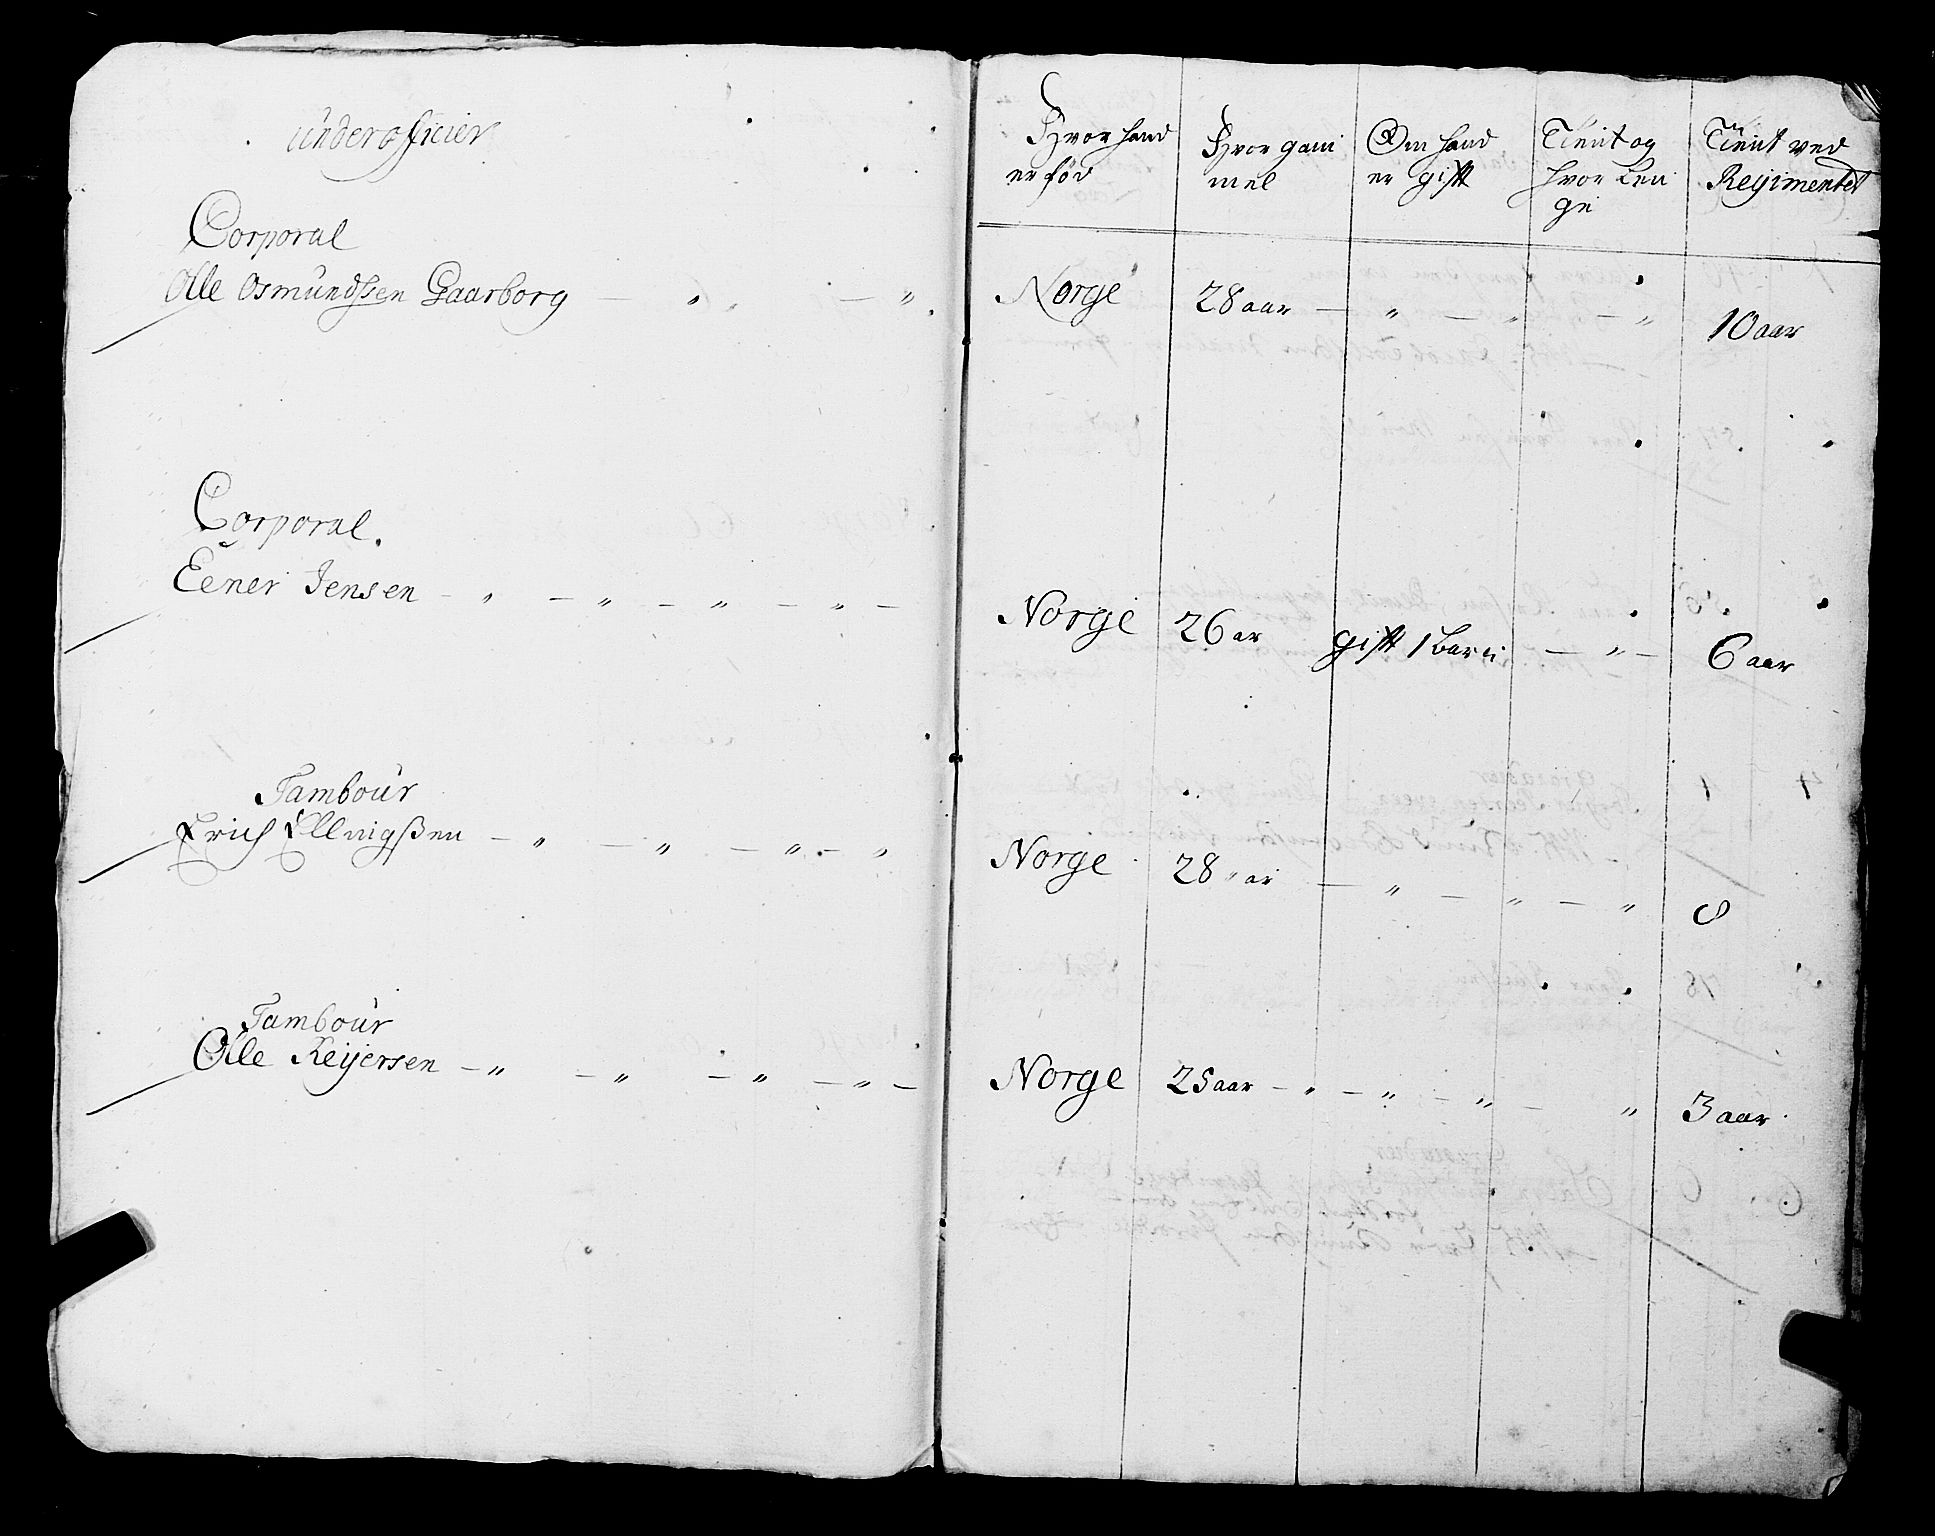 Underofficier
Corporal
Olle Osmundssen Gaarborg — " " — "
Corporal.
Eener Jensen - " — " — " — " —
Tambour
Erich Ellnigßen — " — " — " — "
Tambour
Olle Reijersen — " — " — " — " —
Hvor hand er fød | Hvor gam mel | Om hand er gift | Tient og hvor Len ge | Tient ved Regimentet
Norge 28 aar — " — " — " 10 aar
Norge 26 ar gift 1 barn — " — 6 aar
Norge 28 " ar — " — " — " 8
Norge 25 aar — " — " — " — " 3 aar